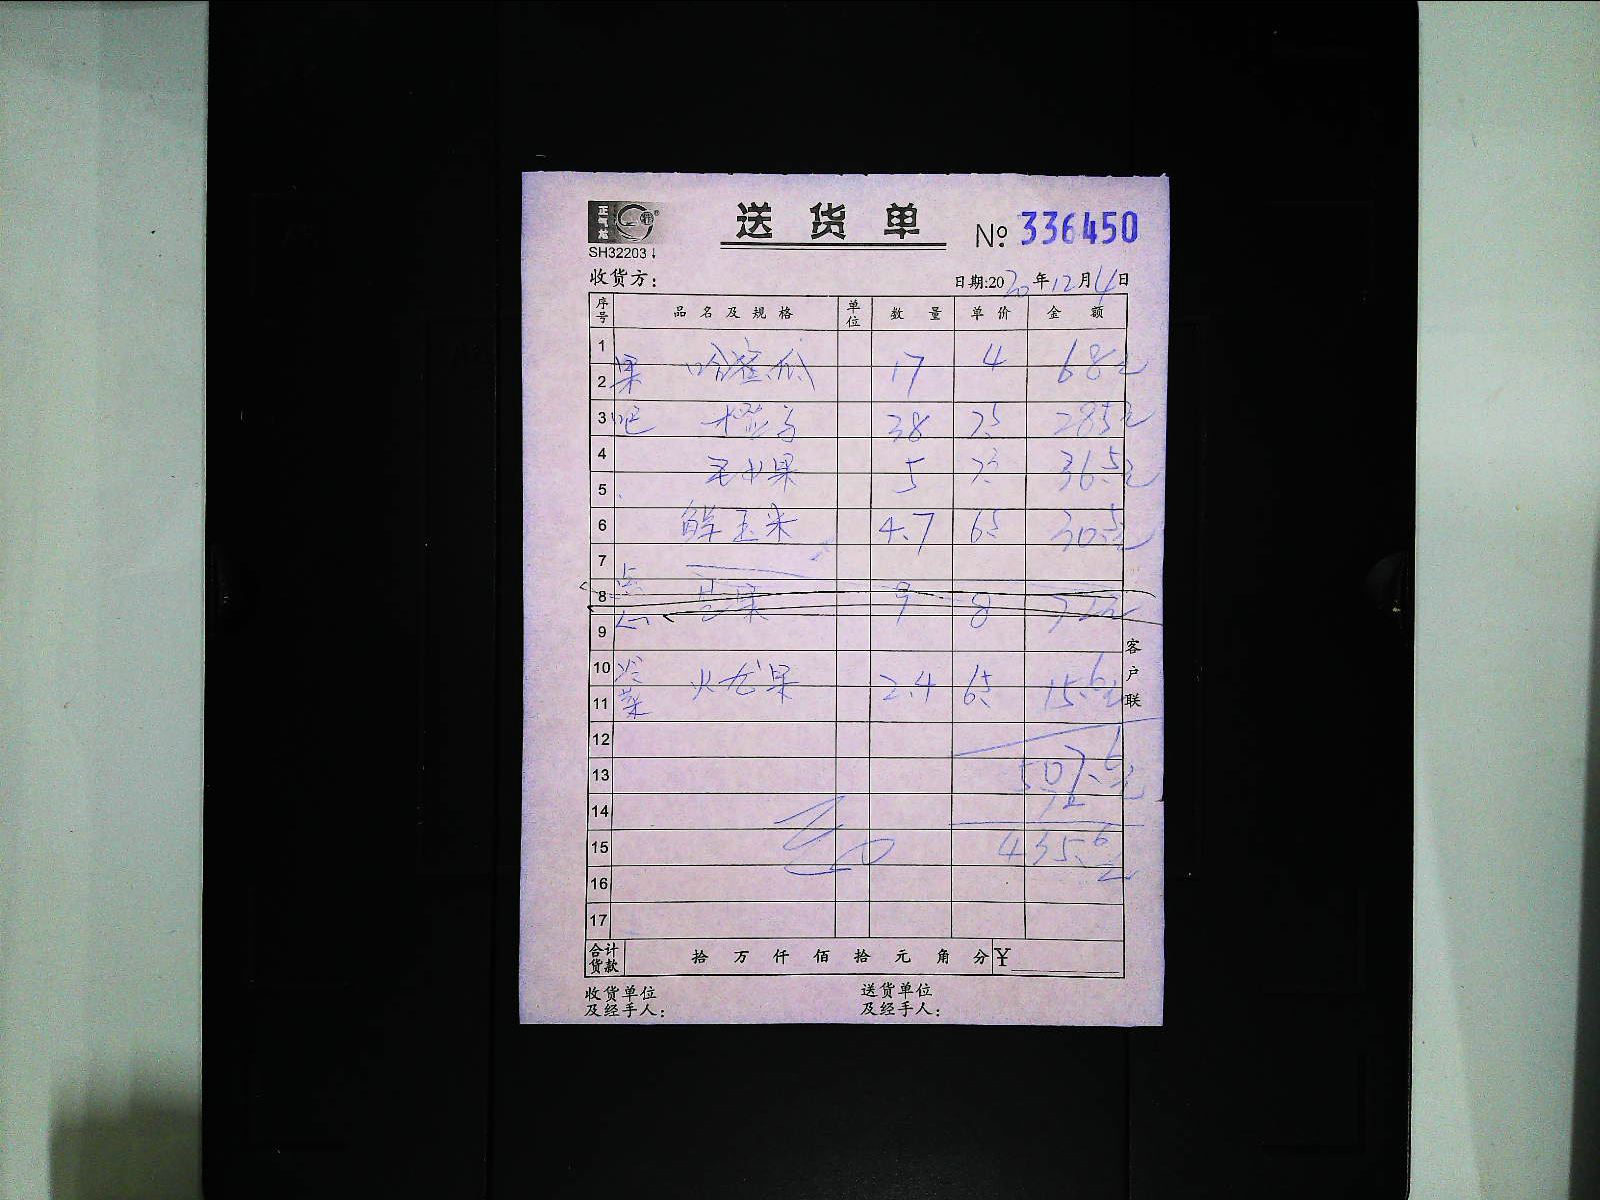 正气龙
送货单
№ 336450
SH32203
收货方：
日期:2020年12月4日
序号 品名及规格 单位 数量 单价 金额
1
2 果 哈蜜瓜 17 4 68元
3 吧 橙子 38 7.5 285元
4
5 5 36.5元
6 鲜玉米 4.7 6.5 30.5元
7
8 点 9 8 72元
9 心
10 冷 火龙果 2.4 6.5 15.6元
11 菜
12
13 507.6元
14 72
15 435.6元
16
17
合计货款 拾 万 仟 佰 拾 元 角 分 ¥
收货单位及经手人：
送货单位及经手人：
客户联